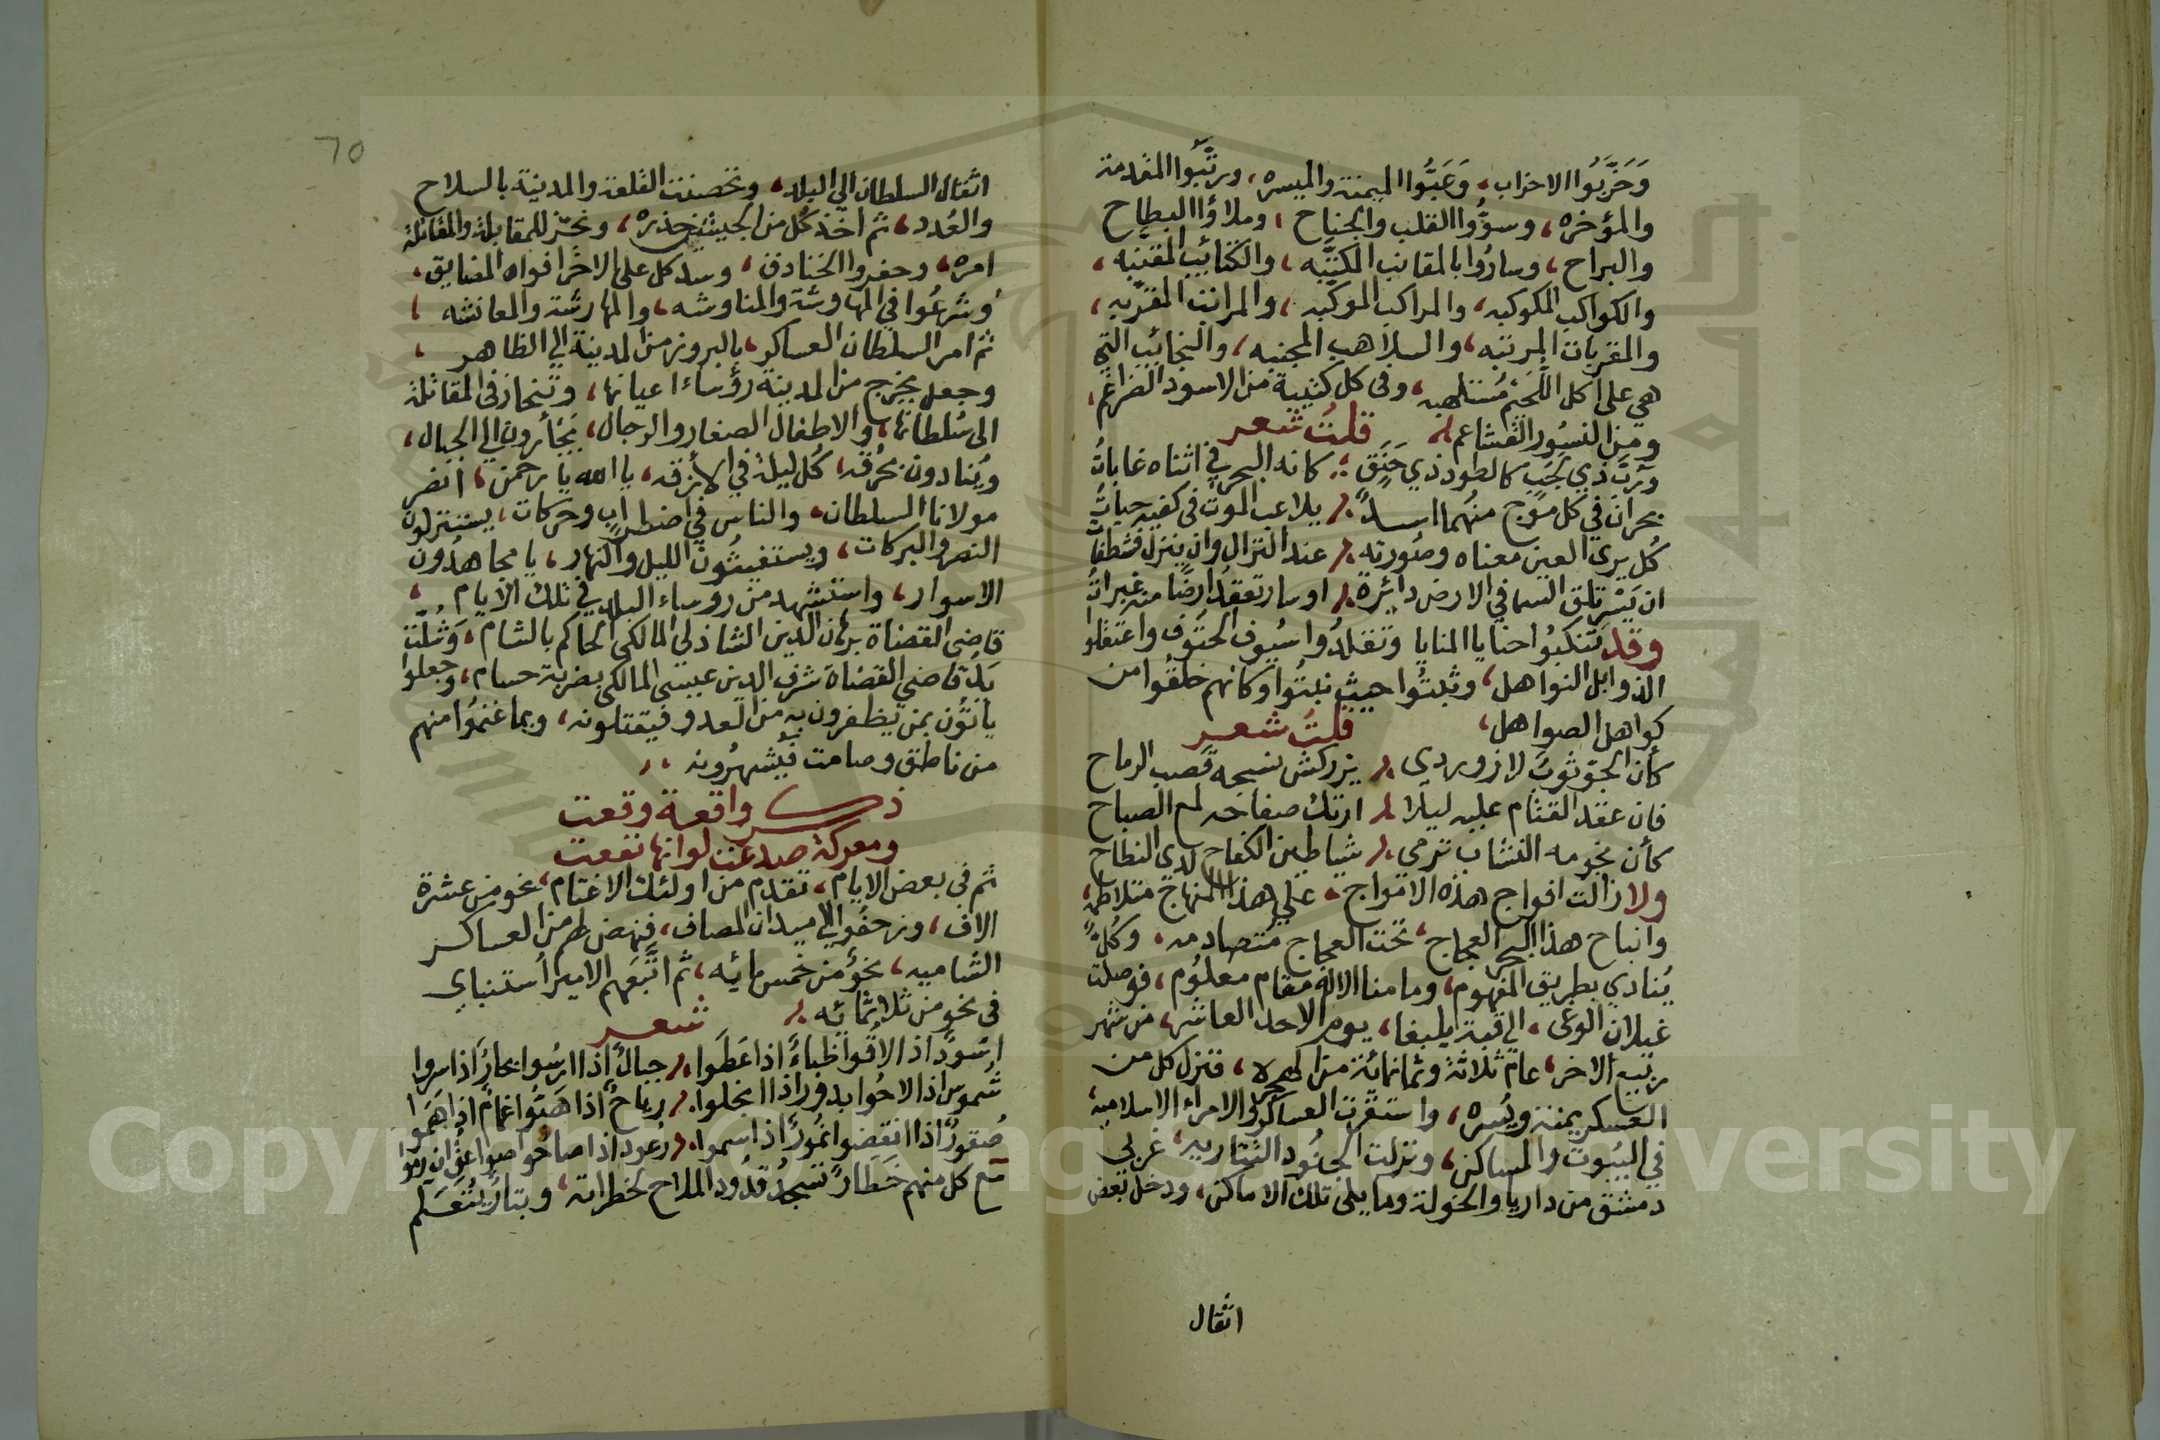 وَحَزَّبُوا الاحزاب، وَعَبَّوُا الميمنة والميسره، ورتَّبُوا المقدمة
والمؤخره، وسوُّوا القلب والجناح، وملاؤا البطاح
والبراح، وسارُوا بالمقانب المكتَّبه، والكتائب المقنبه،
والكواكب المكوكبه، والمراكب الموكبه، والمراتب المقرّبه،
والمقربات المرتبه، والسلاهب المجنبه، والنجائب التي
هي على اكل اللُّحَم مُتلهبه، وفي كل كتيبة من الاسود الضراغم،
ومن النسُور القشاعم قلتُ شعر
وربَّ ذي لجَبٍ كالطود ذي حَنَقٍ كانه البحر في اثناه غاباتُ
بحران في كل موج منهُما اسد يلاعب الموت في كفيه حياتُ
كُل يرى العين معناه وصُورته عند النزال وان ينزل
ان يَسْرِ تلق السما في الارض دائرةً او سار تعقدُ ارضًا منه غبراتُ
وقد تنكبُوا حنايا المنايا وتقلدُوا سيُوف الحتُوف واعتقلوا
الذوابل النواهل، وثبتُوا حيث نبتُوا وكانهم خلقُوا من
كواهل الصواهل، قلتُ شعر
كأن الجوّ ثوبٌ لازوردي يزركش نسجه قصب الرماح
فان عقد القتام عليه ليلا ارتك صفاحه لمع الصباح
كأن نجومه النشاب ترمى شياطين الكفاح لدى النطاح
ولا زالت افواج هذه الامواج، على هذا المنهاج متلاطمه،
واثباج هذا البحر العجاج، تحت العجاج مُتصادمه، وكُلٌّ
يُنادي بطريق المفهوم، وما منا الا له مقام معلُوم، فوصلت
غيلان الوغى، الي قبة يلبغا، يوم الاحد العاشر، من شهر
ربيع الاخر، عام ثلاثة وثمانمائة من الهجرة، فنزل كل من
العسكر يمنة ويُسره، واستقرت العساكر والامراء الاسلاميه،
في البيُوت والمساكن، ونزلت الجنُود التتاريه، غربي
دمشق من داريا والحولة وما يلي تلك الاماكن، ودخل بعض
اثقال
٦٥
اثقال السلطان الي البلد، وتحصنت القلعة والمدينة بالسلاح
والعُدد، ثم اخذ كُل من الجيشين حذره، ونجّز للمقابلة والمقاتلة
امره، وحفروا الخنادق، وسد كل على الاخر افواه المضايق،
وشرعُوا في المهاوشة والمناوشه، والمهارشة والمعانشه،
ثم امر السلطان العساكر، بالبروز من المدينة الي الظاهر،
وجعل يخرج من المدينة رؤساء اعيانها، وتنحاز في المقاتلة
الى سُلطانها، والاطفال الصغار والرجال، يجأرون الي الجبال،
ويُنادون بحُرقه، كُل ليلة في الأزقه، يا الله يا رحمن، انصر
مولانا السلطان، والناس في اضطرابٍ وحركات، يستنزلون
النصر والبركات، ويستغيثُون الليل والنهار، يا مجاهدُون
الاسوار، واستشهد من روساء البلد في تلك الايام،
قاضي القضاة برهان الدين الشاذلي المالكي الحاكم بالشام، وَشُلَّت
يَدُ قاضي القضاة شرف الدين عيسى المالكي بضربة حسام، وجعلوا
يأتُون بمن يظفرون به من العدو فيقتلونه، وبما غنمُوا منهم
من ناطق وصامت فيُشهرُونه
ذكر واقعة وقعت
ومعركة صدعت لو انها نفعت
ثم في بعض الايام، تقدم من اولئك الاغتام، نحو من عشرة
الاف، وزحفُوا الي ميدان المصاف، فنهض لهم من العساكر
الشاميه، نحوٌ من خمسمائه، ثم اتَّبَعهم الامير استنباي
في نحو من ثلاثمائه شعر
اسُودٌ اذ الاقُوا ظباءً اذا عَطَوا جبالٌ اذا ارسُوا بحارٌ اذا سروا
شُموس اذ الاحُوا بدور اذا انجلوا رياحٌ اذا هَبُّوا غمام اذا هَمَوا
صُقورٌ اذا انقضوا نمُورٌ اذا سموا رُعود اذا صاحُوا صواعق ان رموا
مع كل منهم خَطّارٌ تسجُد قدُود الملاح لخطراته، وبتار يتعلم